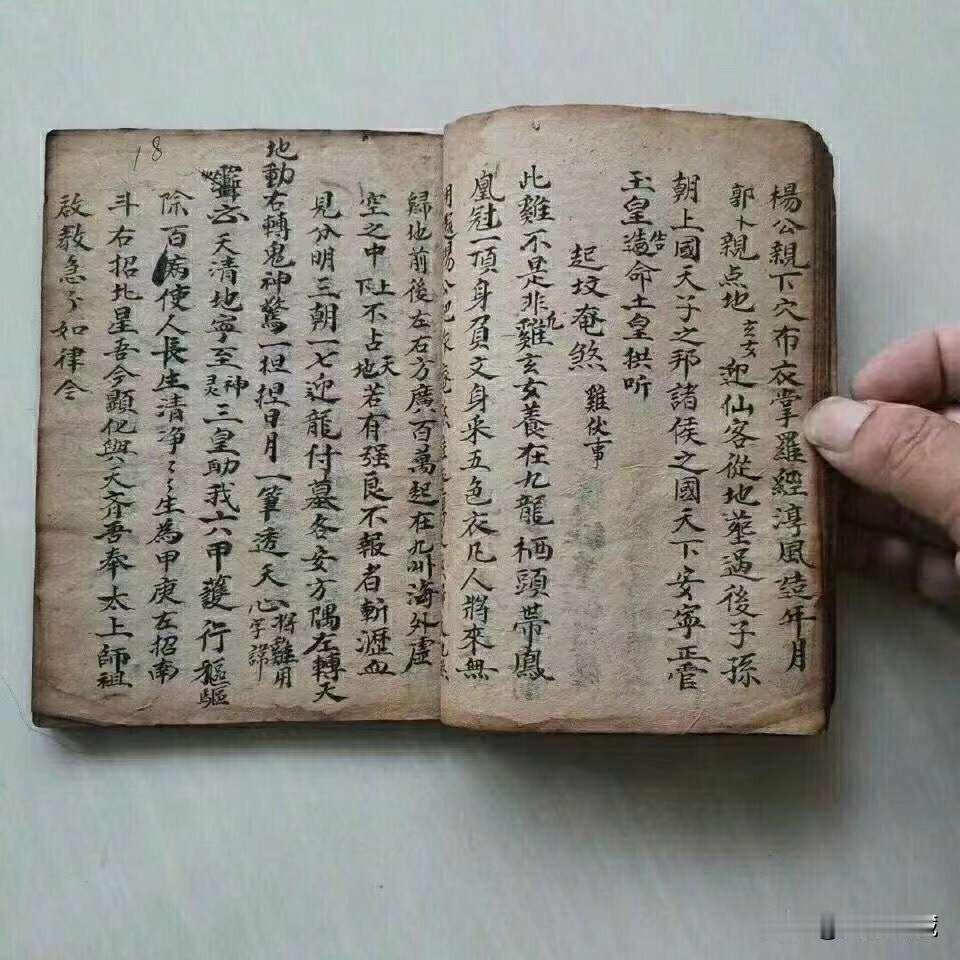 楊公親下穴布衣掌羅經淳風造年月
郭卜親点地玄女起仙客從地塟過後子孫
朝上國天子之邦諸侯之國天下安寧正官
玉皇造告命土皇拱听
起坟奄煞 雞伙事
此雞不是非凡雞玄女養在九龍栖頭帶鳳
凰冠一頂身負文身來五色衣凡人將來無
歸地前後左右方廣百萬起在九州海外虛
空之中上不占天下不占地若有强良不報者斬瀝血
見分明三朝一七迎龍付墓各安方隅左轉天
地動右轉鬼神驚一担担日月一筆透天心 將雞用字諱
天清地寧至神至灵三皇助我六甲護行驅
除百病使人長生清净〻〻生為甲庚左招南
斗右招北星吾今顕化與天齐吾奉太上師祖
啟教急〻如律令
18